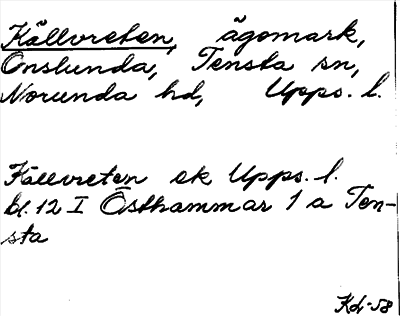 Källvreten, ägomark,
Onslunda, Tensta sn,
Norunda hd, Upps. l.
Källvreten ek Upps. l.
bl. 12 I Östhammar 1 a Ten-
sta
Kd-58